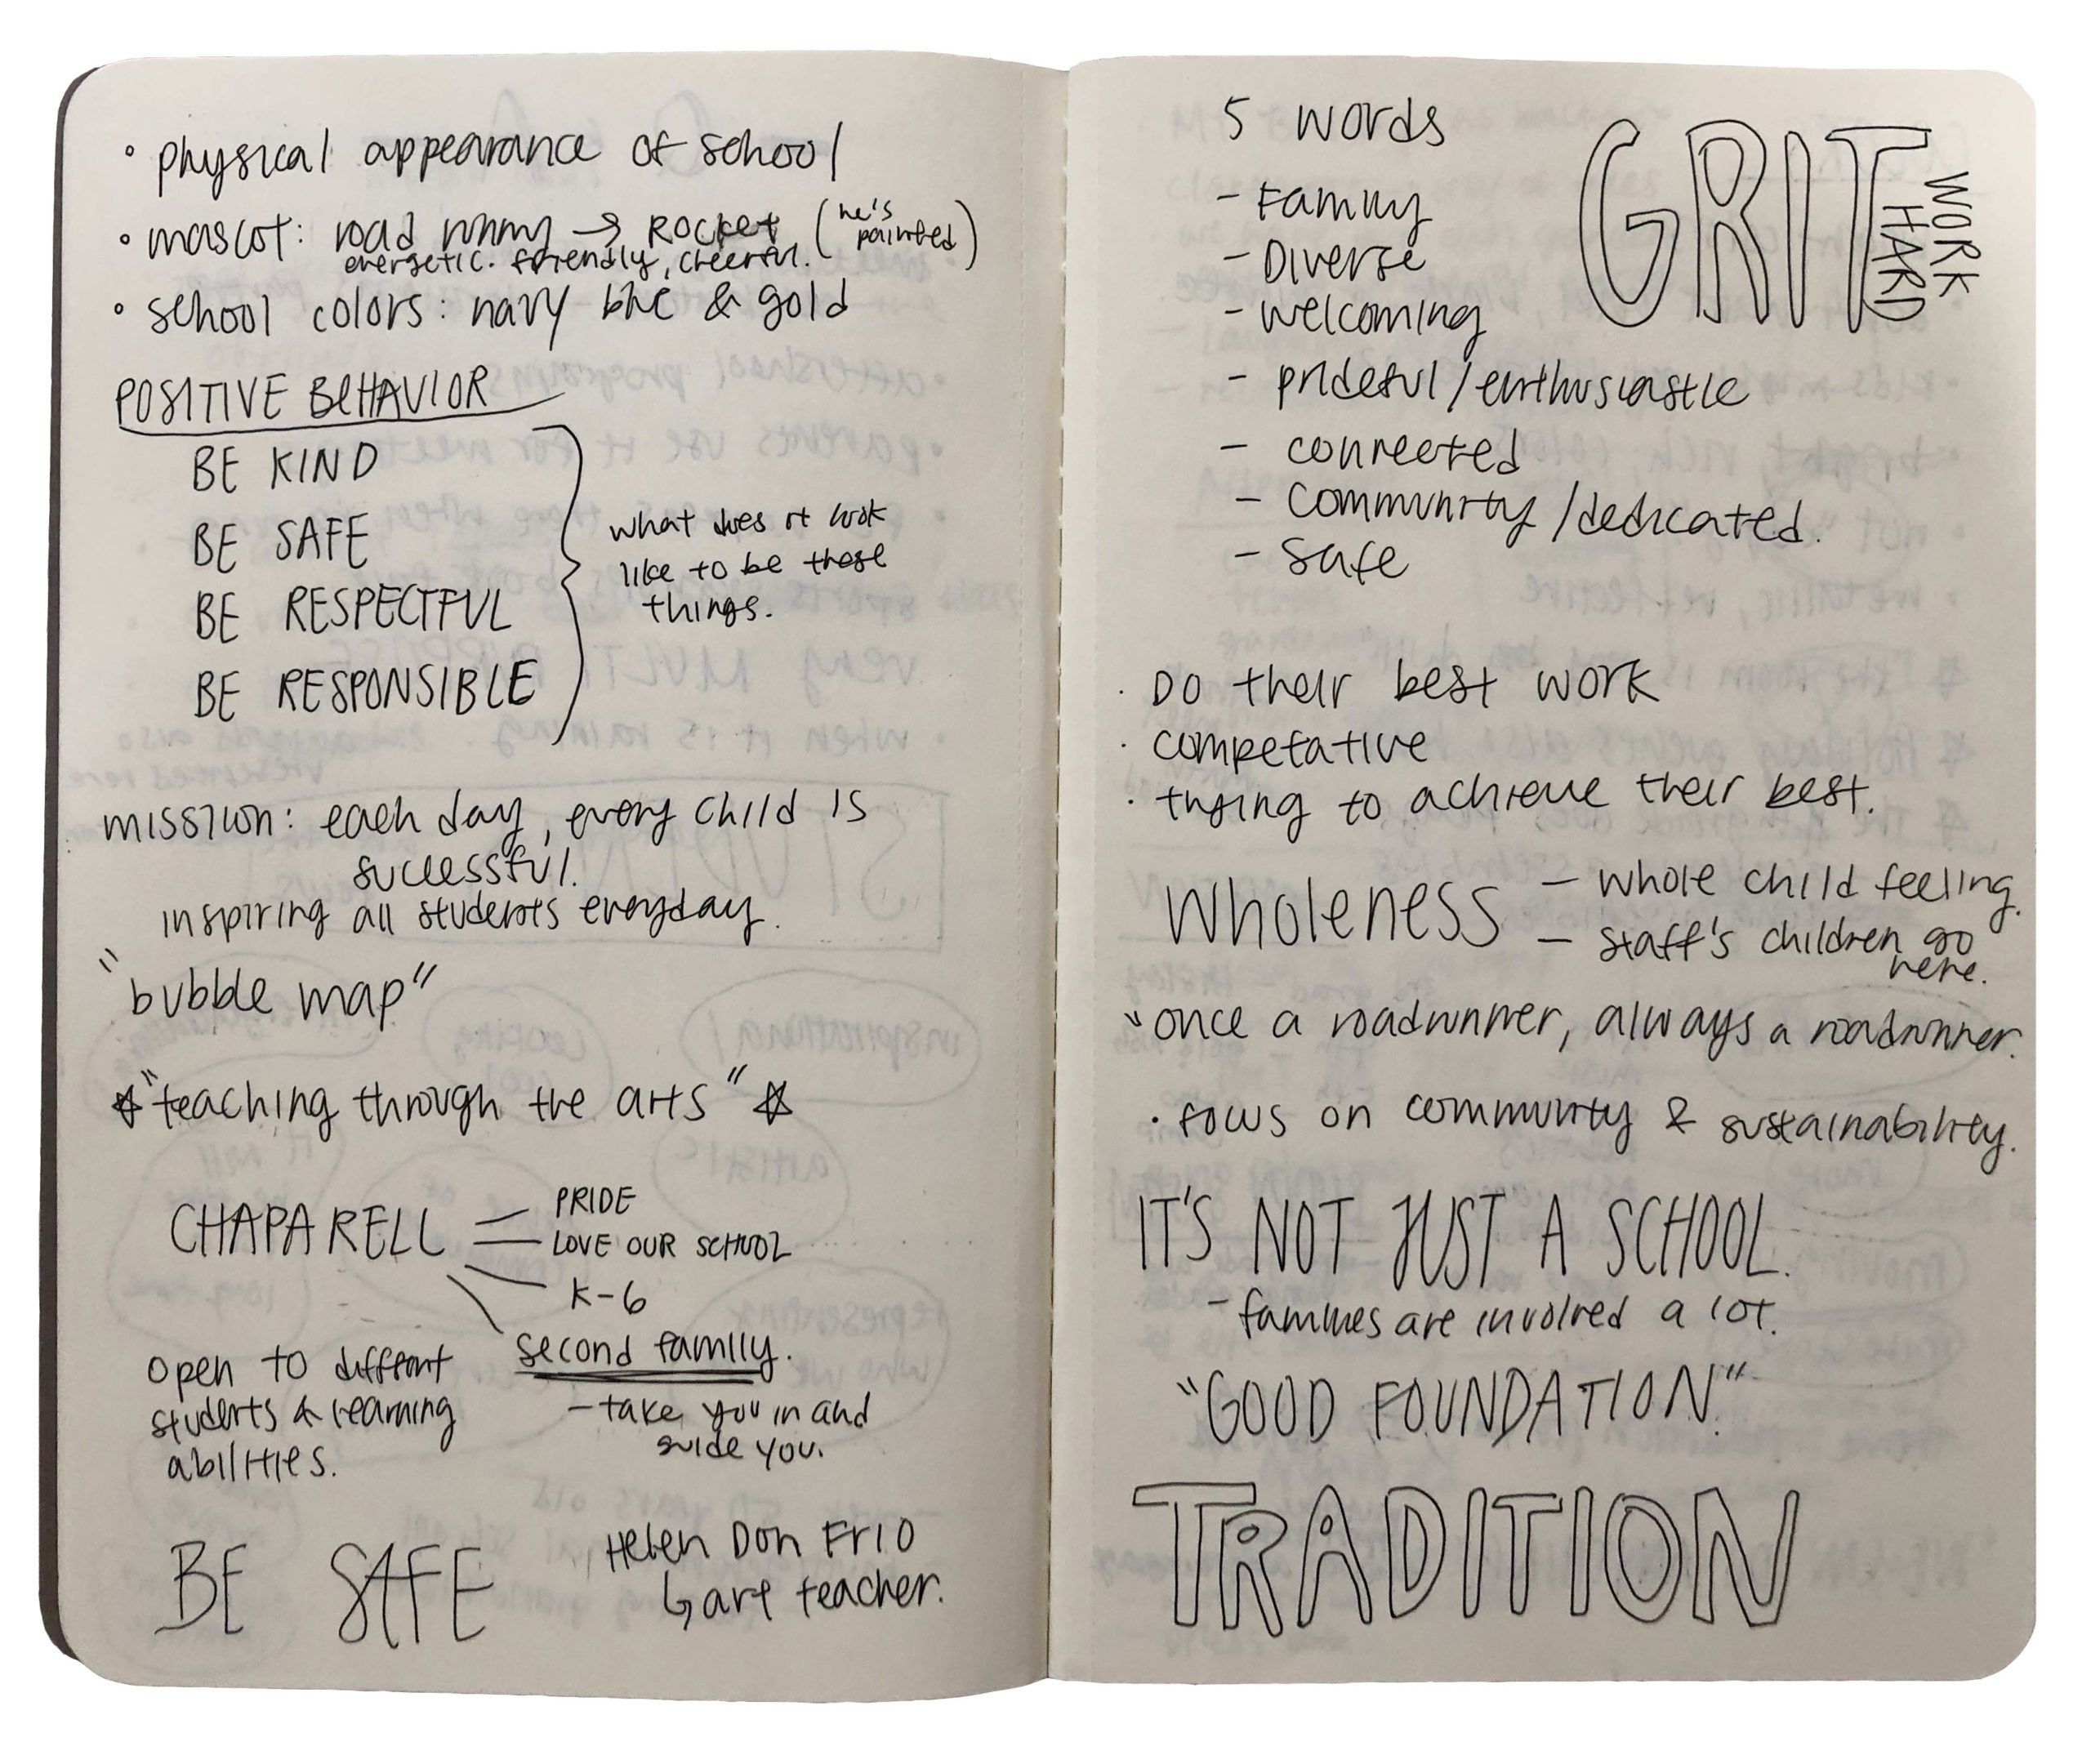 • physical appearance of school
• mascot: road runny → ROCKET (he's painted)
energetic. friendly, cheerful.
• school colors: navy blue & gold
POSITIVE BEHAVIOR
BE KIND
BE SAFE
BE RESPECTFUL
BE RESPONSIBLE
what does it look
like to be these
things.
mission: each day, every child is
successful.
inspiring all students everyday.
"bubble map"
☆"teaching through the arts"☆
CHAPARELL
PRIDE
LOVE OUR SCHOOL
K-6
second family.
- take you in and
guide you.
open to different
students & learning
abilities.
BE SAFE
Helen Don Frio
↳ art teacher.
5 words
- Family
- Diverse
- welcoming
- prideful/enthusiastic
- connected
- community/dedicated.
- safe
GRIT
WORK
HARD
• Do their best work
• competative
• trying to achieve their best.
Wholeness
- whole child feeling.
- staff's children go
here.
"once a roadrunner, always a roadrunner.
• focus on community & sustainability.
IT'S NOT JUST A SCHOOL.
- families are involved a lot.
"GOOD FOUNDATION."
TRADITION